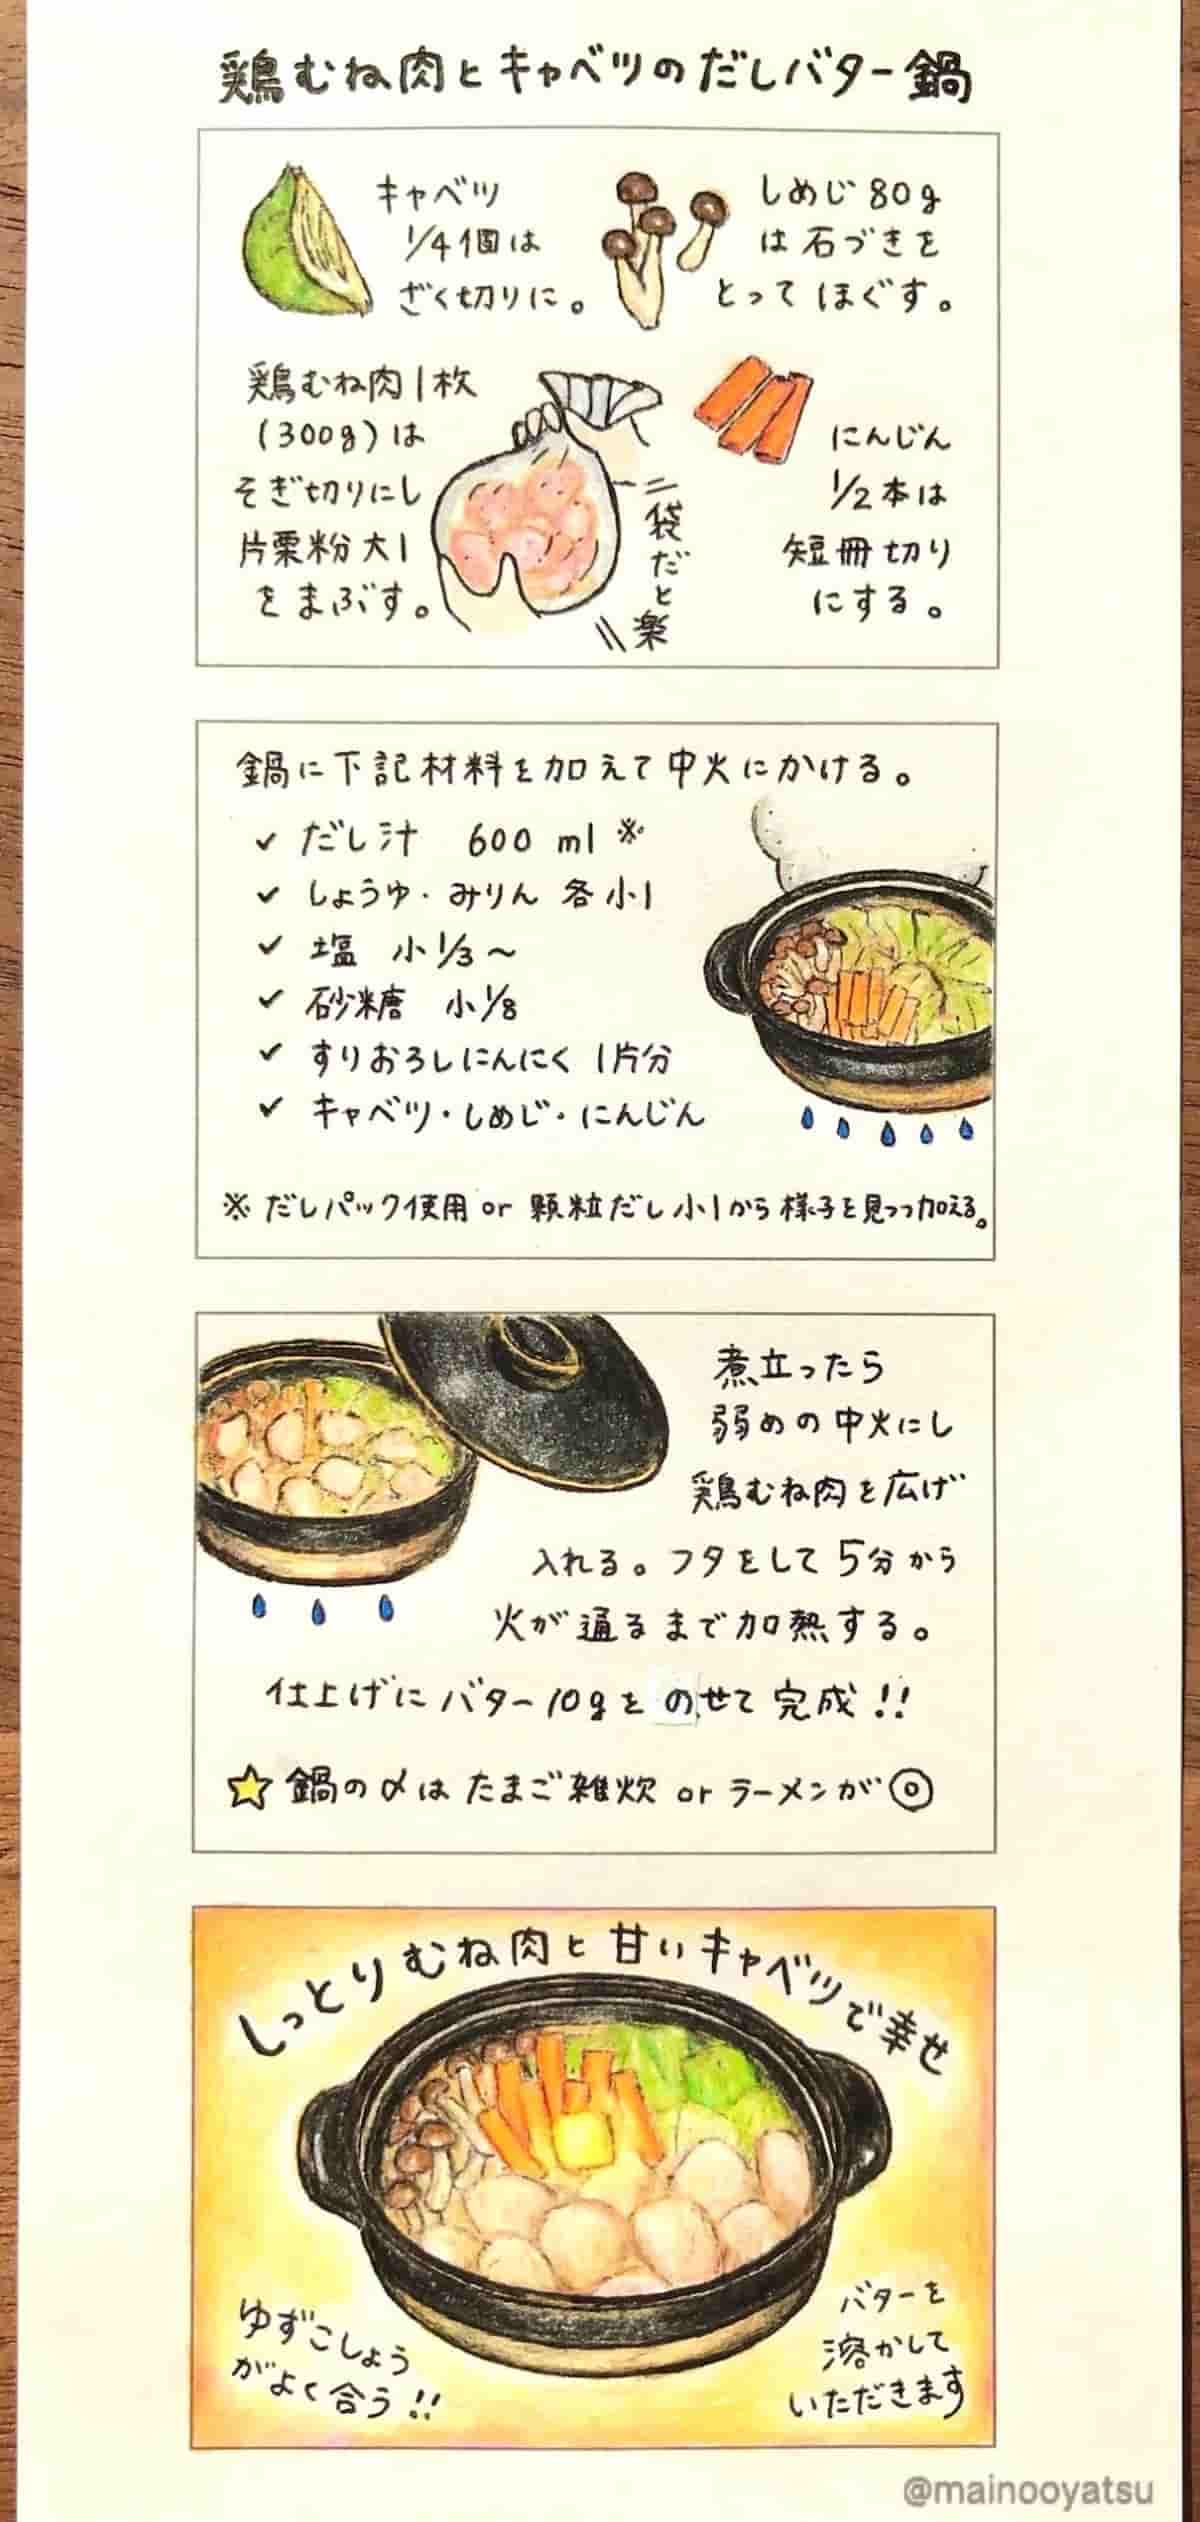 鶏むね肉とキャベツのだしバター鍋
キャベツ
1/4個は
ざく切りに。
しめじ80g
は石づきを
とってほぐす。
鶏むね肉1枚
(300g)は
そぎ切りにし
片栗粉大1
をまぶす。
袋だと楽
にんじん
1/2本は
短冊切り
にする。
鍋に下記材料を加えて中火にかける。
✓ だし汁 600ml※
✓ しょうゆ・みりん 各小1
✓ 塩 小1/3〜
✓ 砂糖 小1/8
✓ すりおろしにんにく 1片分
✓ キャベツ・しめじ・にんじん
※だしパック使用or顆粒だし小1から様子を見つつ加える。
煮立ったら
弱めの中火にし
鶏むね肉を広げ
入れる。フタをして5分から
火が通るまで加熱する。
仕上げにバター10gをのせて完成!!
☆鍋の〆はたまご雑炊orラーメンが◎
しっとりむね肉と甘いキャベツで幸せ
ゆずこしょう
がよく合う!!
バターを
溶かして
いただきます
@mainooyatsu